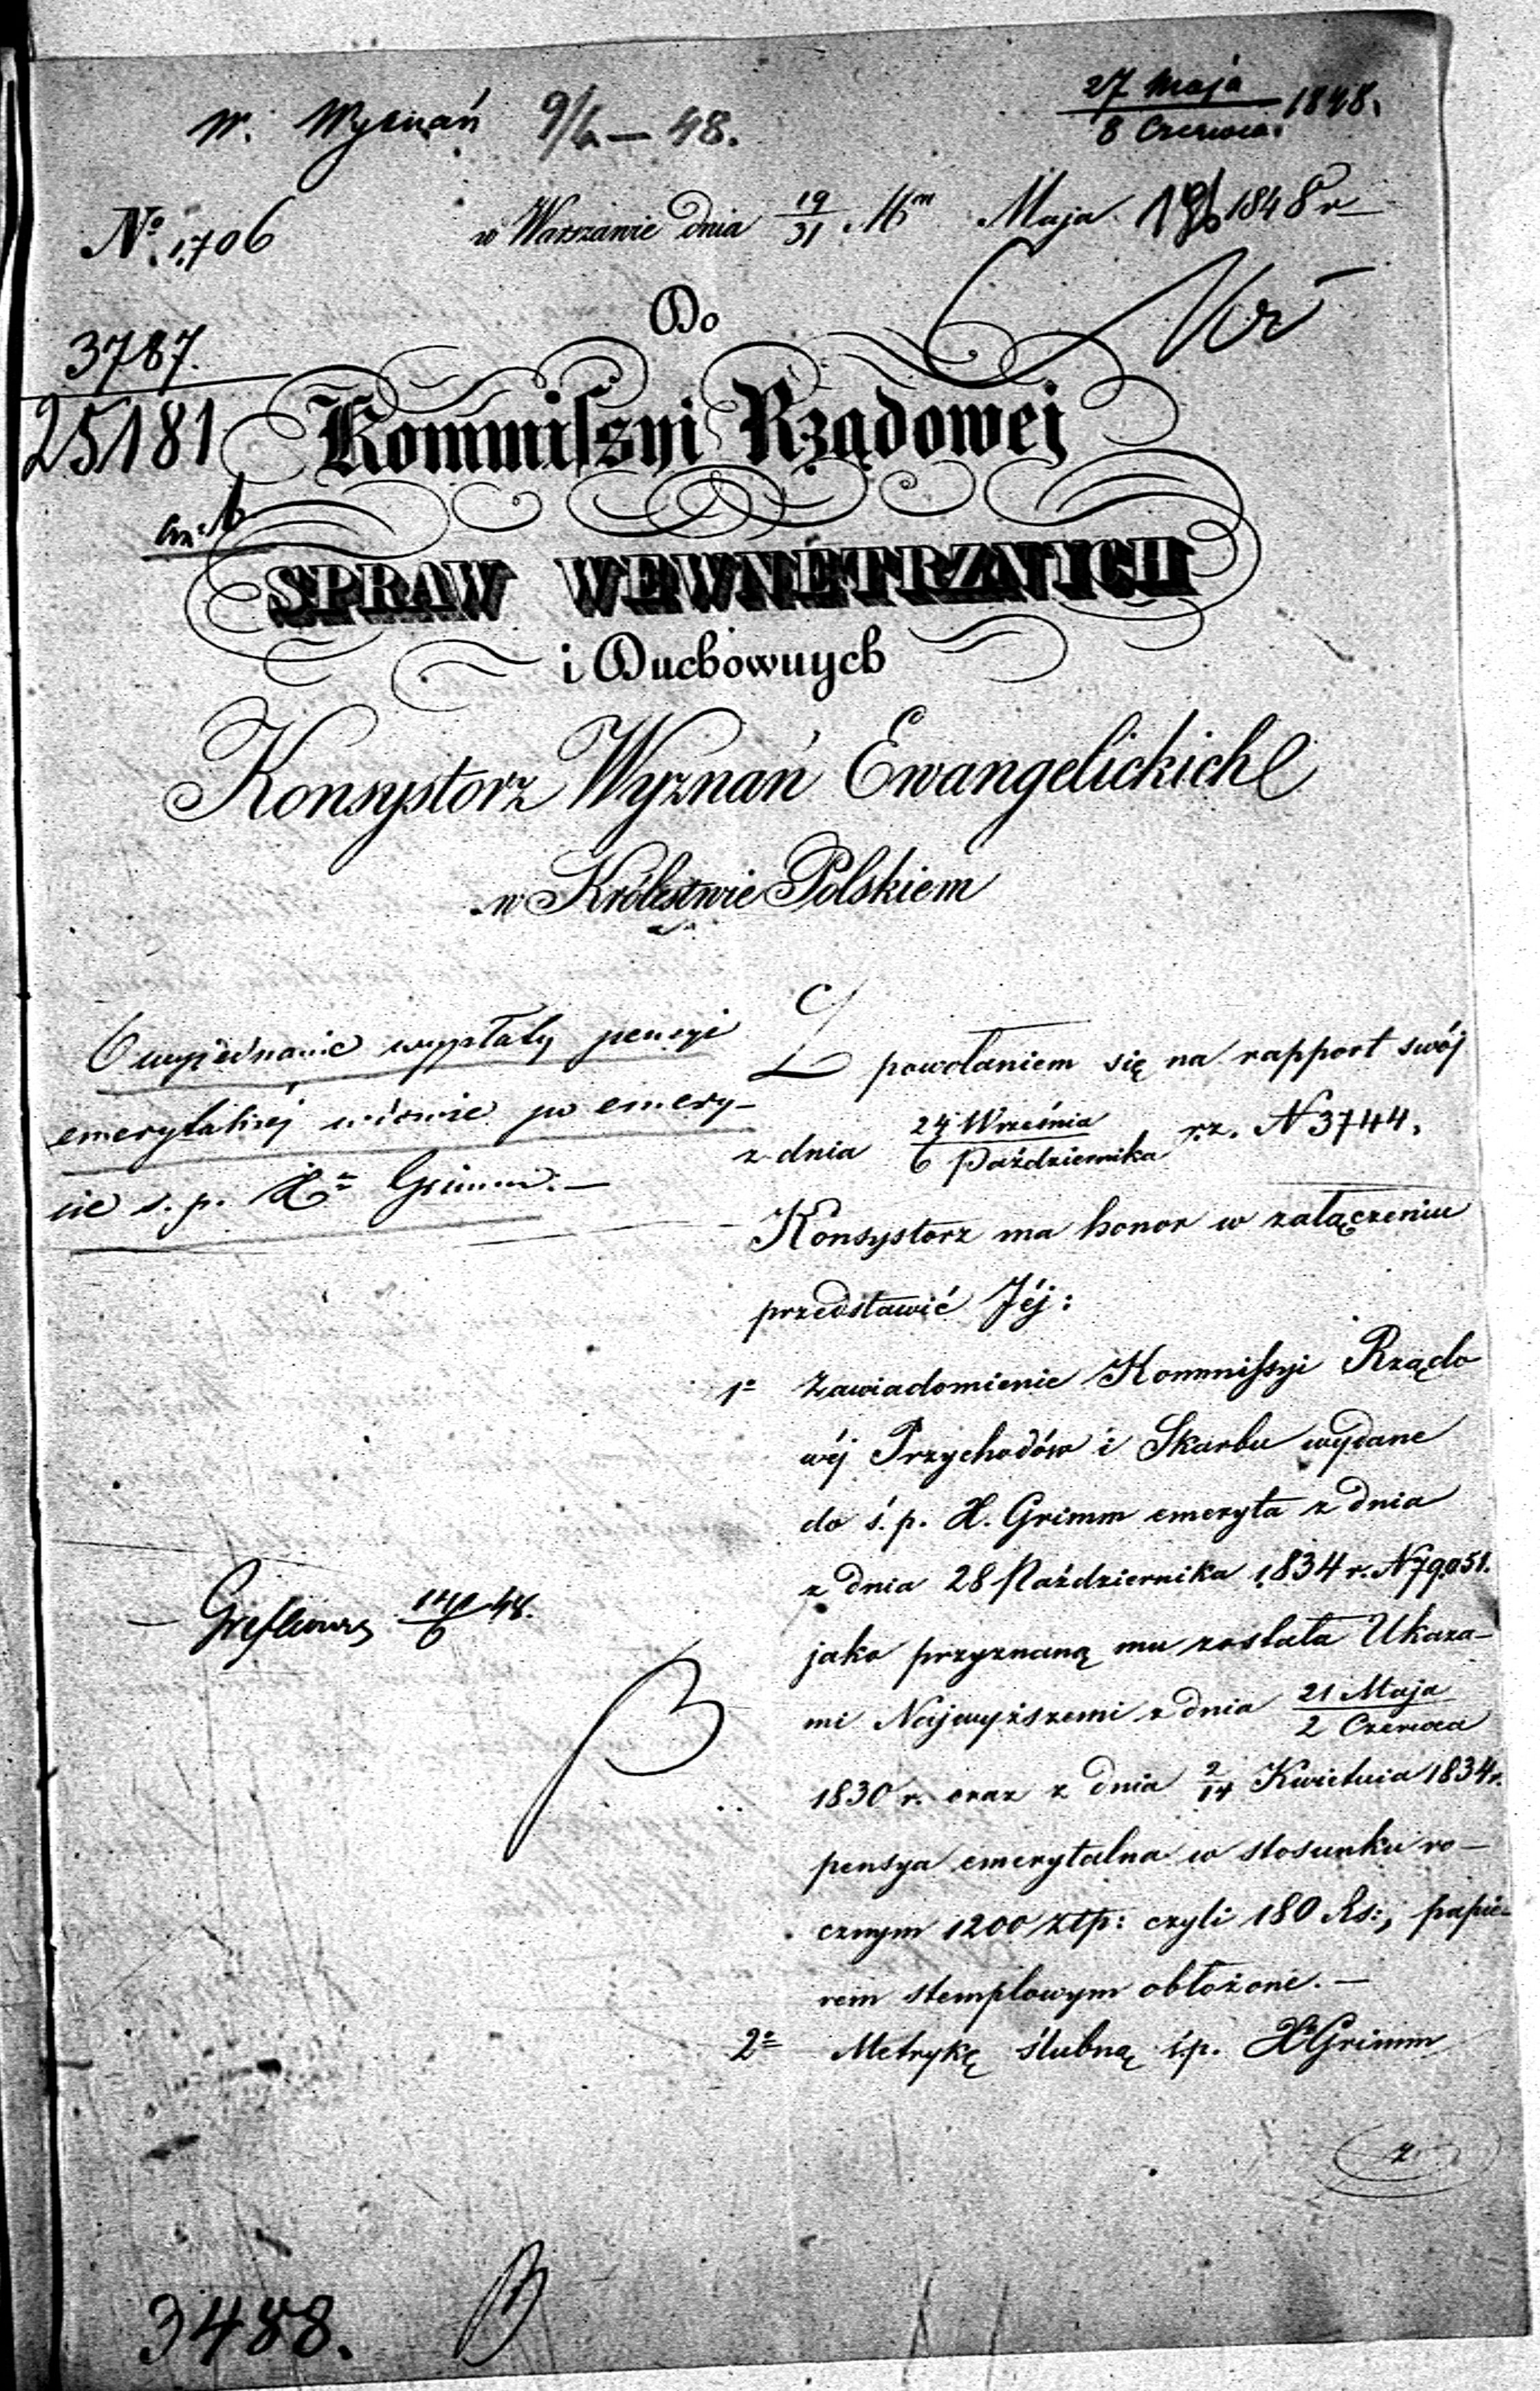 W. Wyznań 9/6 – 48.
27 Maja / 8 Czerwca 1848.
No. 1,706
w Warszawie dnia 19/31 Maja 1848 r
3787.
25181
Do
Kommiſsyi Rządowej
SPRAW WEWNĘTRZNYCH
i Duchownych
Konsystorz Wyznań Ewangelickich
w Królestwie Polskiem
O wyjednanie wypłaty pensyi
emerytalnej wdowie po emery-
cie s. p. X= Grimm. —
Z powołaniem się na rapport swój
z dnia 24 Września / 6 Października r.z. N 3744,
Konsystorz ma honor w załączeniu
przedstawić Jéj:
1= Zawiadomienie Kommiſsyi Rządo
wéj Przychodów i Skarbu wydane
do ś. p. X. Grimm emeryta z dnia
z dnia 28 Października 1834 r. N 79,051.
jako przyznaną mu została Ukaza-
mi Najwyższemi z dnia 21 Maja / 2 Czerwca
1830 r. oraz z dnia 2/14 Kwietnia 1834 r.
pensya emerytalna w stosunku ro-
cznym 1200 złp: czyli 180 Rs:, papie-
rem stemplowym obłożone. —
2= Metrykę ślubną ś.p. X. Grimm
3488.